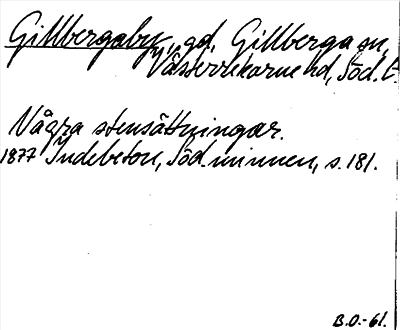 Gillbergaby, gd, Gillberga sn,
Västerrekarne hd, Söd. l.
Några stensättningar.
1877 Indebetou, Söd. minnen, s. 181.
B.O.-61.